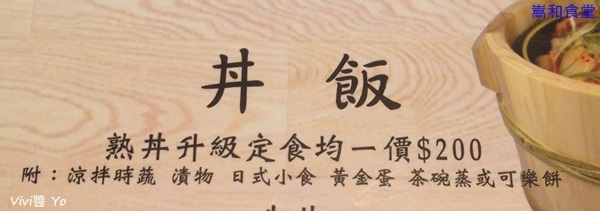 嵩和食堂
丼 飯
熟丼升級定食均一價$200
附：涼拌時蔬 漬物 日式小食 黃金蛋 茶碗蒸或可樂餅
Vivi醬 Yo